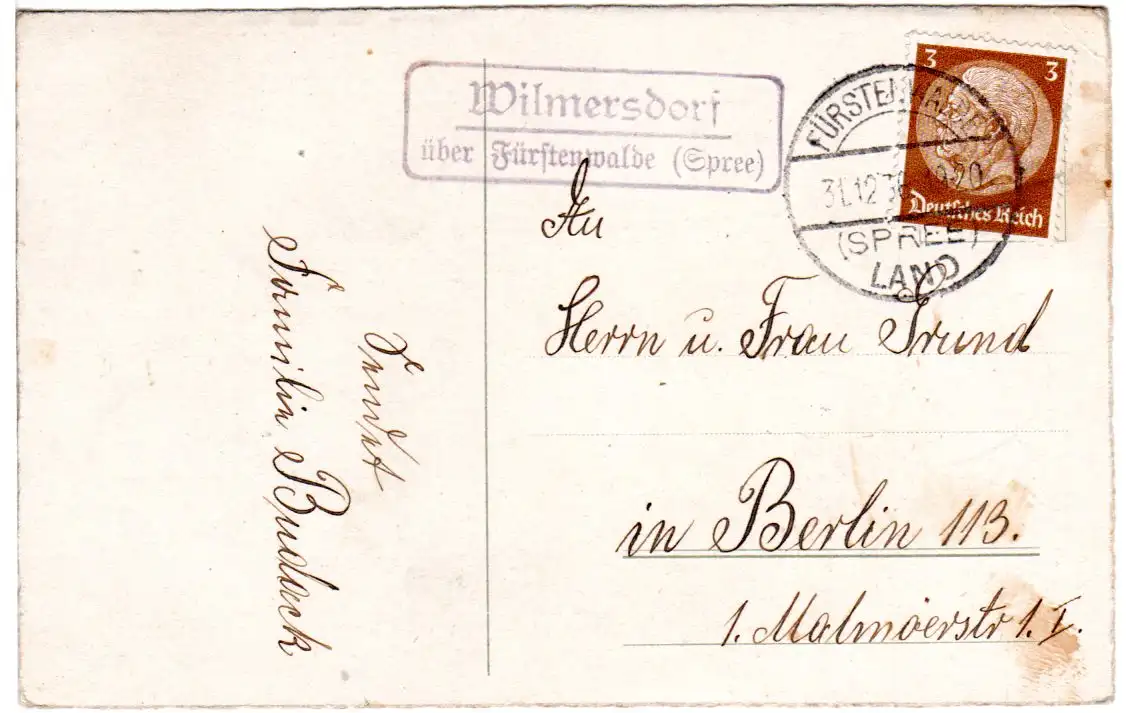 Wilmersdorf
über Fürstenwalde (Spree)
FÜRSTENWALDE
31.12.3
20
(SPREE)
LAND
3 3
Deutsches Reich
An
Herrn u. Frau Grund
in Berlin 113.
1. Malmöerstr 1. I.
Sendet
Familie Budack